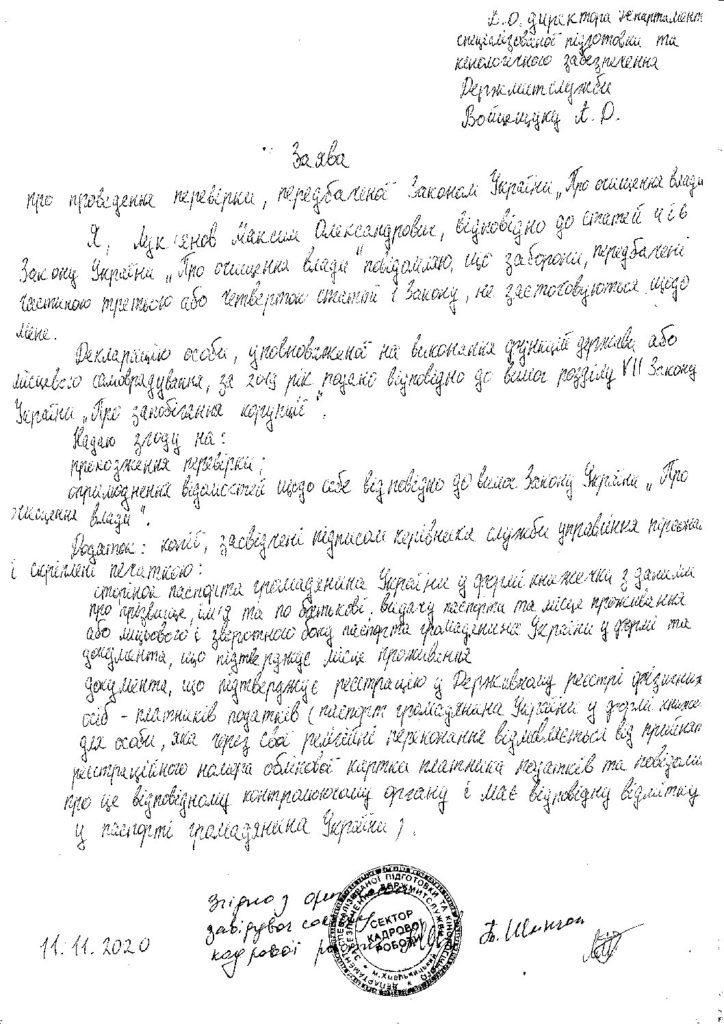 В.О. директора департамент
спеціалізованої підготовки та
кенологічного забезпечення
Держмитслужби
Войцещуку А. D.
Заява
про проведення перевірки, передбаченої Законом України „Про очищення влади
Я, Лук'янов Максим Олександрович, відповідно до статей 4 і 6
Закону України „Про очищення влади" повідомляю, що заборони, передбачені
частиною третьою або четвертою статті 1 Закону, не застосовуються щодо
мене.
Декларацію особи, уповноваженої на виконання функцій держави або
місцевого самоврядування, за 2019 рік подано відповідно до вимог розділу VII Закону
України „Про запобігання корупції".
Надаю згоду на:
проходження перевірки;
оприлюднення відомостей щодо себе відповідно до вимог Закону України „Про
чищення влади".
Додаток: копії, засвідчені підписом керівника служби управління персона
і скріплені печаткою:
сторінок паспорта громадянина України у формі книжечки з даними
про прізвище, ім'я та по батькові, видачу паспорта та місце проживання
або лицьового і зворотного боку паспорта громадянина України у формі та
документа, що підтверджує місце проживання
документа, що підтверджує реєстрацію у Державному реєстрі фізичних
осіб - платників податків (паспорт громадянина України у формі книже
для особи, яка через свої релігійні переконання відмовляється від прийнят
реєстраційного номера облікової картки платника податків та повідоми
про це відповідному контролюючому органу і має відповідну відмітку
у паспорті громадянина України).
Згідно з
завідувач
кадрової
СЕКТОР
КАДРОВОЇ
РОБОТИ
м. Хмельницький
11.11.2020